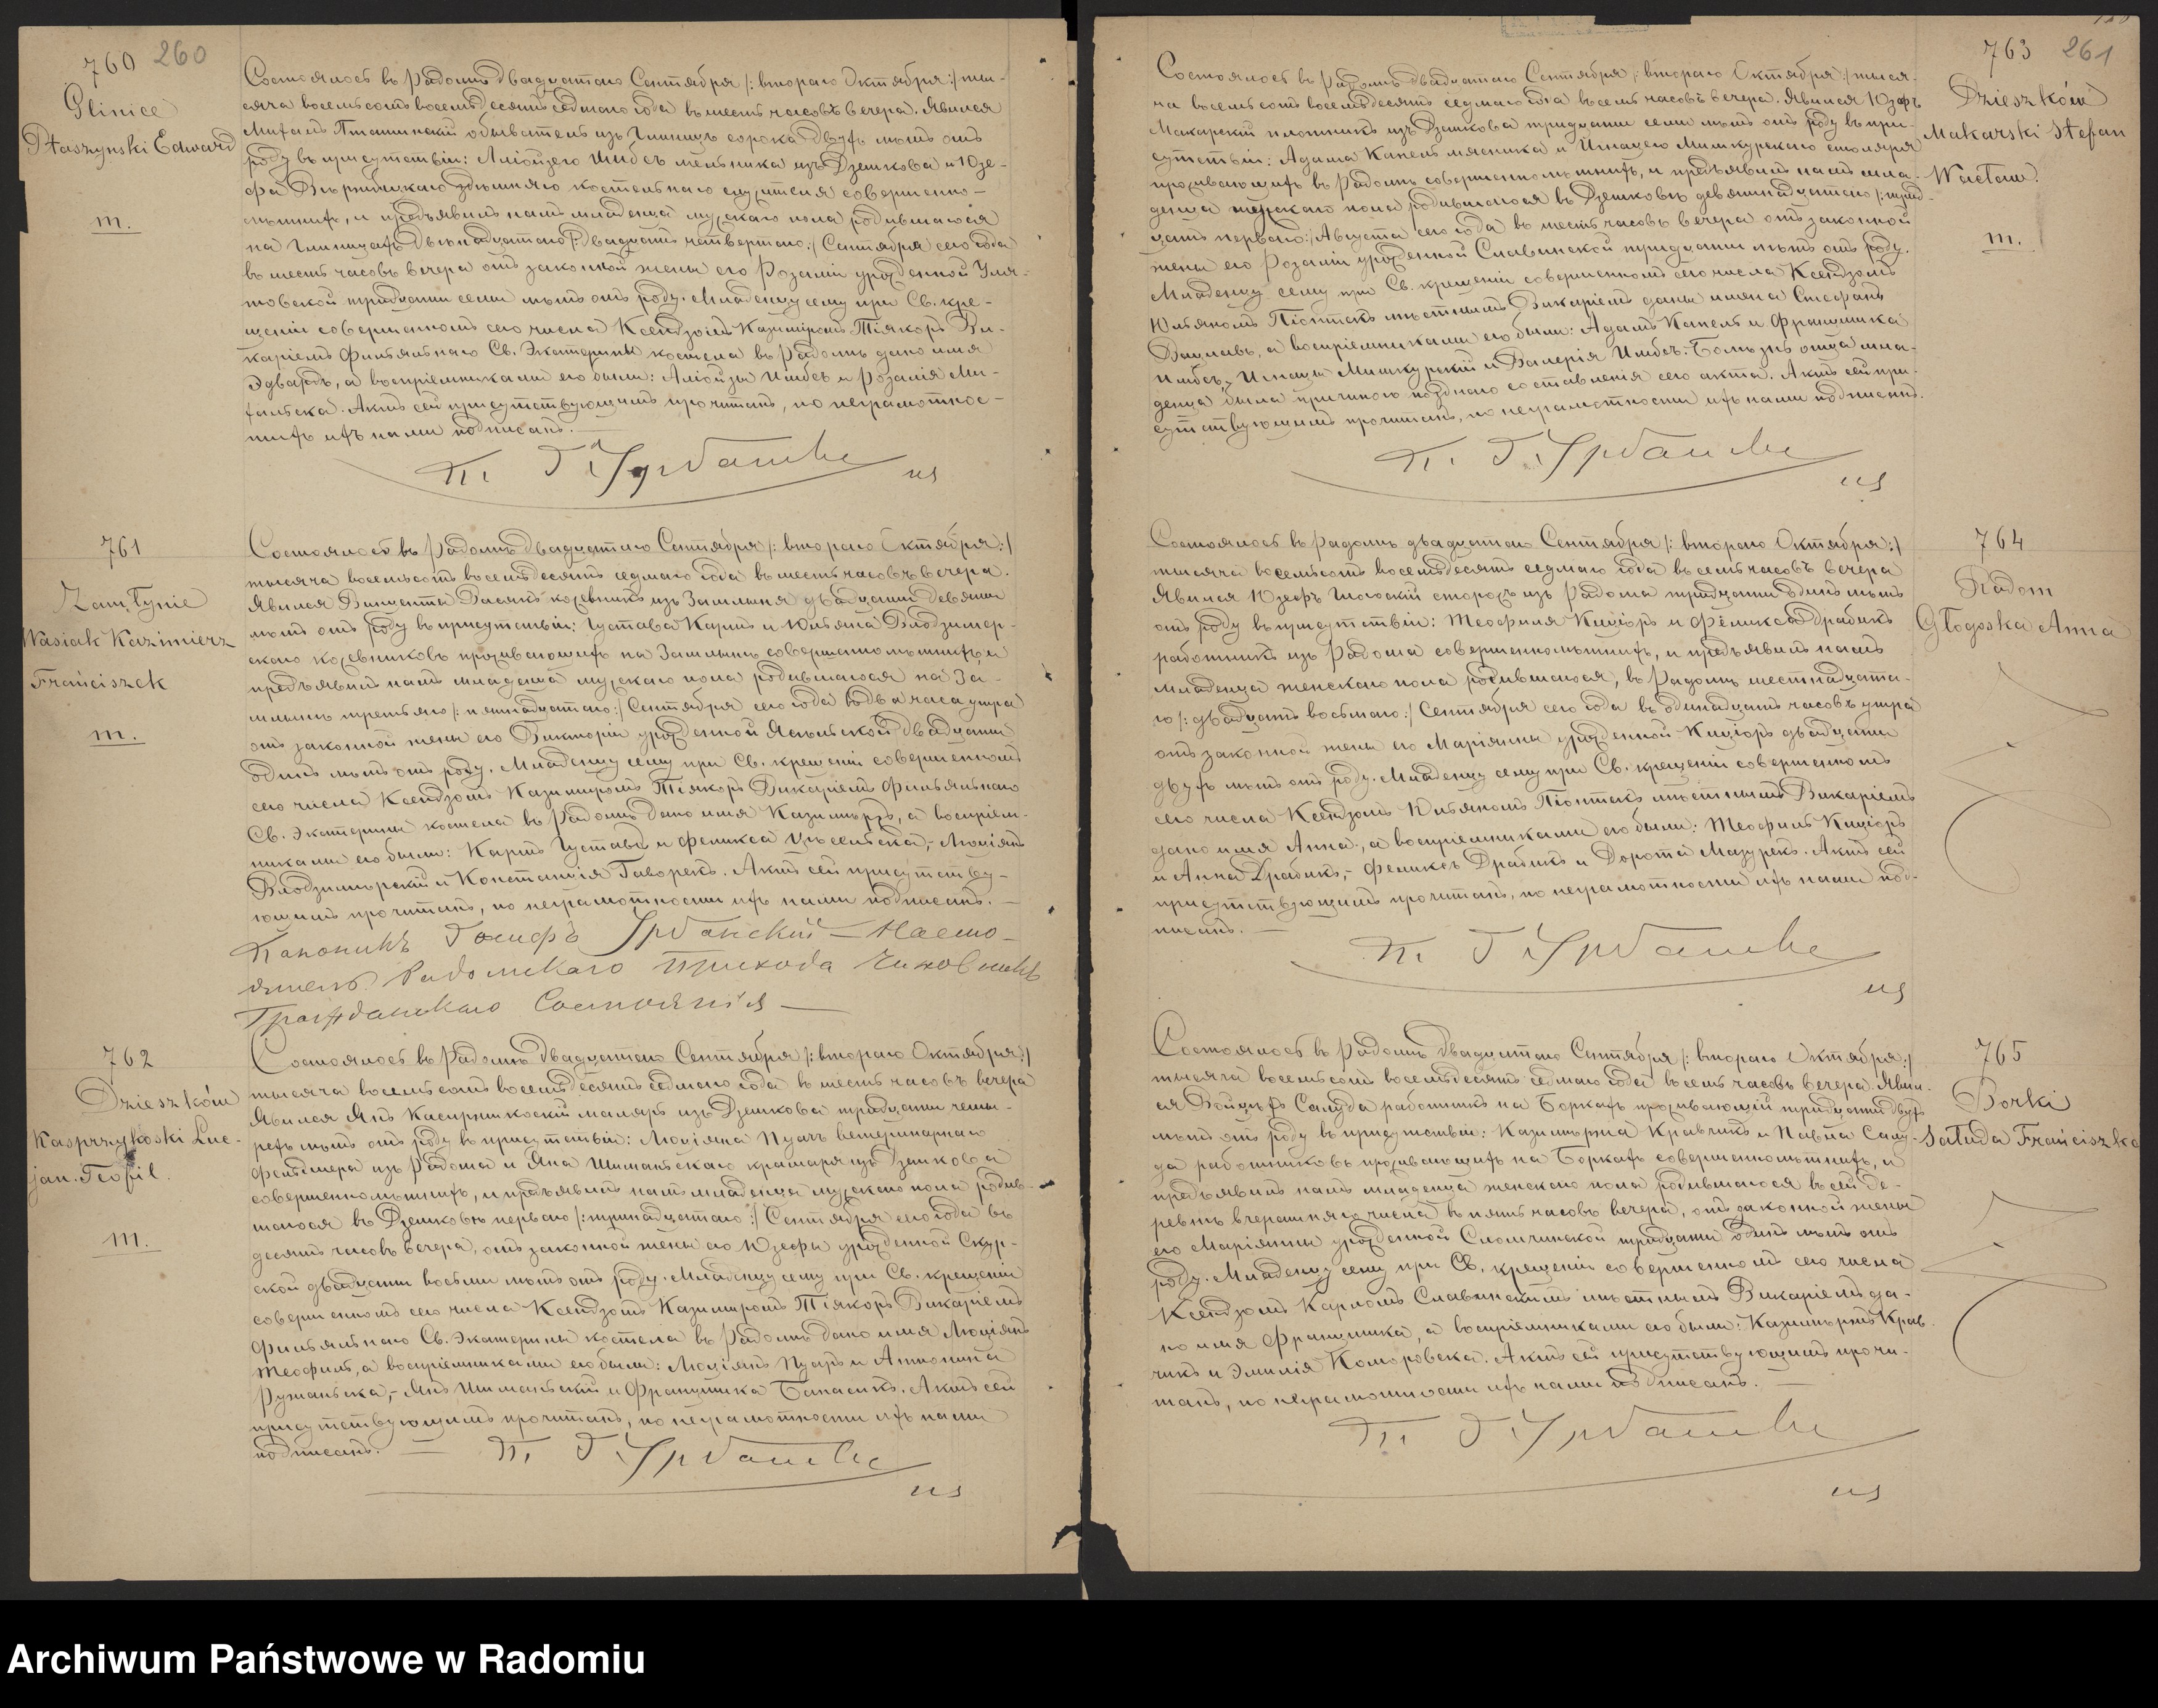 760 260
Glinice
Ptaszynski Edward
m.
Состоялось въ Радомѣ двадцатаго Сентября /: втораго Октября :/ ты-
сяча восемьсотъ восемьдесятъ седмаго года въ шесть часовъ вечера. Явился
обыватель изъ Глиницъ сорока двухъ лѣтъ отъ
роду въ присутствіи: мельника изъ Дзешкова и Юзе-
фа здѣшняго костельнаго служителя совершенно-
лѣтнихъ, и предъявилъ намъ младенца мужскаго пола родившагося
на Глиницахъ двѣнадцатаго /: двадцать четвертаго :/ Сентября сего года
въ шесть часовъ вечера отъ законной жены его Розаліи урожденной
тридцати семи лѣтъ отъ роду. Младенцу сему при Св. кре-
щеніи совершенномъ сего числа Ксендзомъ Казимиромъ Тіякоръ Ви-
каріемъ Филіяльнаго Св. Екатерины костела въ Радомѣ дано имя
Эдвардъ, а воспріемниками его были: и Розалія Ми-
хальска. Актъ сей присутствующимъ прочитанъ, по неграмотнос-
ти ихъ нами подписанъ.
761
Zamłynie
Wasiak Kazimierz
Franciszek
m.
Состоялось въ Радомѣ двадцатаго Сентября /: втораго Октября :/
тысяча восемьсотъ восемьдесятъ седмаго года въ шесть часовъ вечера.
Явился Винцентій Васякъ кожевникъ изъ Замлыня двадцати девяти
лѣтъ отъ роду въ присутствіи: Густава Карлъ и Юльяна Влодзимер-
скаго кожевниковъ проживающихъ на Замлыню совершеннолѣтнихъ, и
предъявилъ намъ младенца мужскаго пола родившагося на За-
млыню третьяго /: пятнадцатаго :/ Сентября сего года въ два часа утра
отъ законной жены его Викторіи урожденной двадцати
одинъ лѣтъ отъ роду. Младенцу сему при Св. крещеніи совершенномъ
сего числа Ксендзомъ Казимиромъ Тіякоръ Викаріемъ Филіяльнаго
Св. Екатерины костела въ Радомѣ дано имя Казимѣржъ, а воспріем-
никами его были: Карлъ Густавъ и Феликса Люціянъ
Влодзимирскій и Констанція Гаворекъ. Актъ сей присутству-
ющимъ прочитанъ, по неграмотности ихъ нами подписанъ.
Каноникъ Іосифъ Урбанскій Насто-
ятель Радомскаго Прихода Чиновникъ
Гражданскаго Состоянія
762
Dzieszków
Kasprzykoski Luc-
jan. Teofil.
m.
Состоялось въ Радомѣ двадцатаго Сентября /: втораго Октября :/
тысяча восемьсотъ восемьдесятъ седмаго года въ шесть часовъ вечера
Явился Янъ Каспржикоскій маляръ изъ Дзешкова тридцати четы-
рехъ лѣтъ отъ роду въ присутствіи: Люціяна ветеринарнаго
фельдшера изъ Радома и Яна Шиманьскаго изъ Дзешкова
совершеннолѣтнихъ, и предъявилъ намъ младенца мужскаго пола родив-
шагося въ Дзешковѣ перваго /: тринадцатаго :/ Сентября сего года въ
десять часовъ вечера, отъ законной жены его Юзефы урожденной Скур-
ской двадцати восьми лѣтъ отъ роду. Младенцу сему при Св. крещеніи
совершенномъ сего числа Ксендзомъ Казимиромъ Тіякоръ Викаріемъ
Филіяльнаго Св. Екатерины костела въ Радомѣ дано имя Люціянъ
Теофиль, а воспріемниками его были: Люціянъ и Антонина
Янъ Шиманьскій и Францишка Банасикъ. Актъ сей
присутствующимъ прочитанъ, по неграмотности ихъ нами
подписанъ.
763 261
Dzieszków
Makarski Stefan
Wacław.
m.
Состоялось въ Радомѣ двадцатаго Сентября /: втораго Октября :/ тыся-
ча восемьсотъ восемьдесятъ седмаго года въ семь часовъ вечера. Явился Юзефъ
Макарскій плотникъ изъ Дзешкова тридцати семи лѣтъ отъ роду въ при-
сутствіи: Адама Капель мясника и Игнацего Мишкурскаго столяра
проживающихъ въ Радомѣ совершеннолѣтнихъ, и предъявилъ намъ мла-
денца мужскаго пола родившагося въ Дзешковѣ девятнадцатаго /: трид-
цать перваго :/ Августа сего года въ шесть часовъ вечера отъ законной
жены его Розаліи урожденной Славинской тридцати лѣтъ отъ роду.
Младенцу сему при Св. крещеніи совершенномъ сего числа Ксендзомъ
Юльяномъ Піонтекъ мѣстнымъ Викаріемъ даны имена Стефанъ
Вацлавъ, а воспріемниками его были: Адамъ Капель и Францишка
Игнацы Мишкурскій и Валерія Болѣзнь отца мла-
денца была причиною поздняго составленія сего акта. Актъ сей при-
сутствующимъ прочитанъ, по неграмотности ихъ нами подписанъ.
764
Radom
Głogoska Anna
Состоялось въ Радомѣ двадцатаго Сентября /: втораго Октября :/
тысяча восемьсотъ восемьдесятъ седмаго года въ семь часовъ вечера
Явился Юзефъ сторожъ изъ Радома тридцати одинъ лѣтъ
отъ роду въ присутствіи: Теофиля Киціоръ и Феликса Драбикъ
работникъ изъ Радома совершеннолѣтнихъ, и предъявилъ намъ
младенца женскаго пола родившагося, въ Радомѣ шестнадцата-
го /: двадцать восьмаго :/ Сентября сего года въ одинадцать часовъ утра
отъ законной жены его Маріянны урожденной Киціоръ двадцати
двухъ лѣтъ отъ роду. Младенцу сему при Св. крещеніи совершенномъ
сего числа Ксендзомъ Юльяномъ Піонтекъ мѣстнымъ Викаріемъ
дано имя Анна, а воспріемниками его были: Теофиль Киціоръ
и Анна Драбикъ, Феликсъ Драбикъ и Дорота Мазурекъ. Актъ сей
присутствующимъ прочитанъ, по неграмотности ихъ нами под-
писанъ.
765
Borki
Sałuda Franciszka
Состоялось въ Радомѣ двадцатаго Сентября /: втораго Октября :/
тысяча восемьсотъ восемьдесятъ седмаго года въ семь часовъ вечера. Явил-
ся Войцѣхъ Салуда работникъ на Боркахъ проживающій тридцати двухъ
лѣтъ отъ роду въ присутствіи: Казимѣржа Кравчикъ и Павла Салу-
да работниковъ проживающихъ на Боркахъ совершеннолѣтнихъ, и
предъявилъ намъ младенца женскаго пола родившагося въ сей де-
ревнѣ вчерашняго числа въ пять часовъ вечера, отъ законной жены
его Маріянны урожденной Сломчинской тридцати одинъ лѣтъ отъ
роду. Младенцу сему при Св. крещеніи совершенномъ сего числа
Ксендзомъ Карломъ Славинскимъ мѣстнымъ Викаріемъ да-
но имя Францишка, а воспріемниками его были: Казимѣржъ Крав-
чикъ и Эмилія Коморовска. Актъ сей присутствующимъ прочи-
танъ, по неграмотности ихъ нами подписанъ.
Archiwum Państwowe w Radomiu